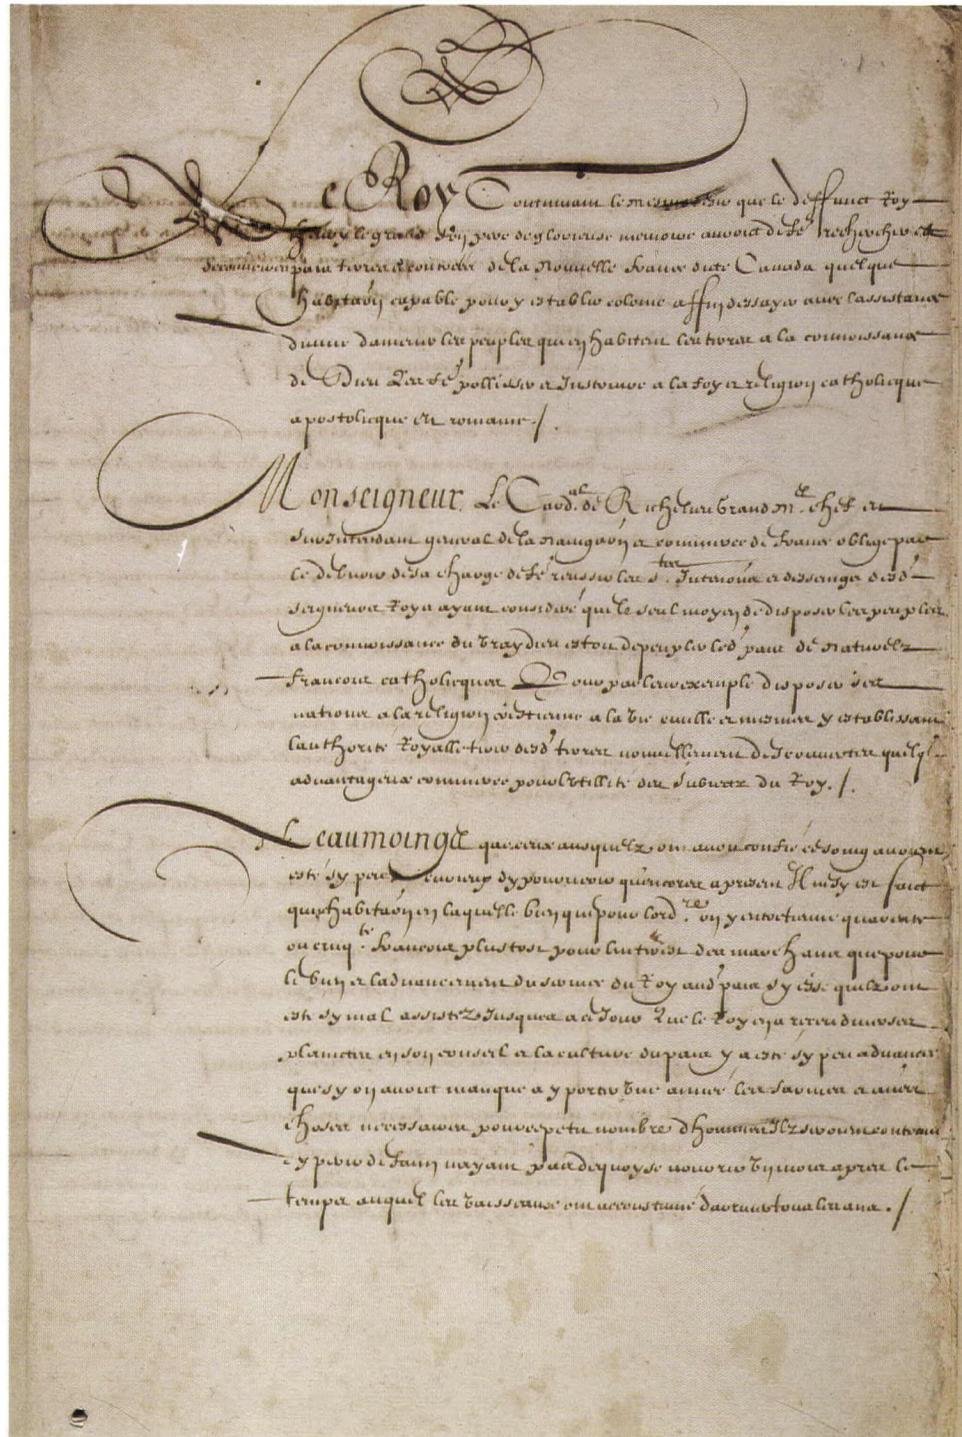 Le Roy Continuant le mesme desir que le deffunct Roy
Henry le grand son pere de glorieuse memoire avoit de fe. rechercher et
descouvrir es pais terres et contrees de la Nouvelle France dite Canada quelque
habitaon capable pour y establir colonie affin dessayer avec lassistance
divine damener les peuples qui en habitent les terres a la connoissance
de Dieu Les fe. pollicer et Instruire a la foy et religion catholicque
apostolicque et romaine ./.
Monseigneur Le Card.al de Richelieu Grand M.e chef et
surIntendant general de la Navigaon et commerce de France oblige par
le debvoir de sa charge de fe. reussir les s.tes Intentions et desseings desd.
seigneurs Roys ayant considere que le seul moyen de disposer les peuples
a la connoissance du vray Dieu estoit de peupler led. pais de Naturels
francois catholicques Pour par leur exemple disposer ces
nations a la religion crestienne a la vie civille et mesmes y establissant
lauthorite Royalle tirer desd. terres nouvellement descouvertes quelq.
advantageux commerce pour lutillite des subiects du Roy ./.
Neaumoings que ceux ausquelz on avoit confié ce soing avoient
esté sy peu curieux dy pourveoir quencores a present Il ne sy est faict
qune habitaon en laquelle bien que pour lord.re on y entretienne quarente
ou cinq.te francois plustost pour linterest des marchans que pour
le bien et ladvancement du service du Roy aud. pais sy esse quilz ont
esté sy mal assistez Jusques a ce Jour Que le Roy en a receu diverses
plaintes en son conseil et la culture du pais y a este sy peu advancée
que sy on avoit manque a y porter une année les farines et autres
choses necessaires pour ce petit nombre dhommes Ilz seroient contrains
dy perir de faim nayant pas dequoy se nourrir un mois apres le
temps auquel les vaisseaux ont accoustumé darriver tous les ans ./